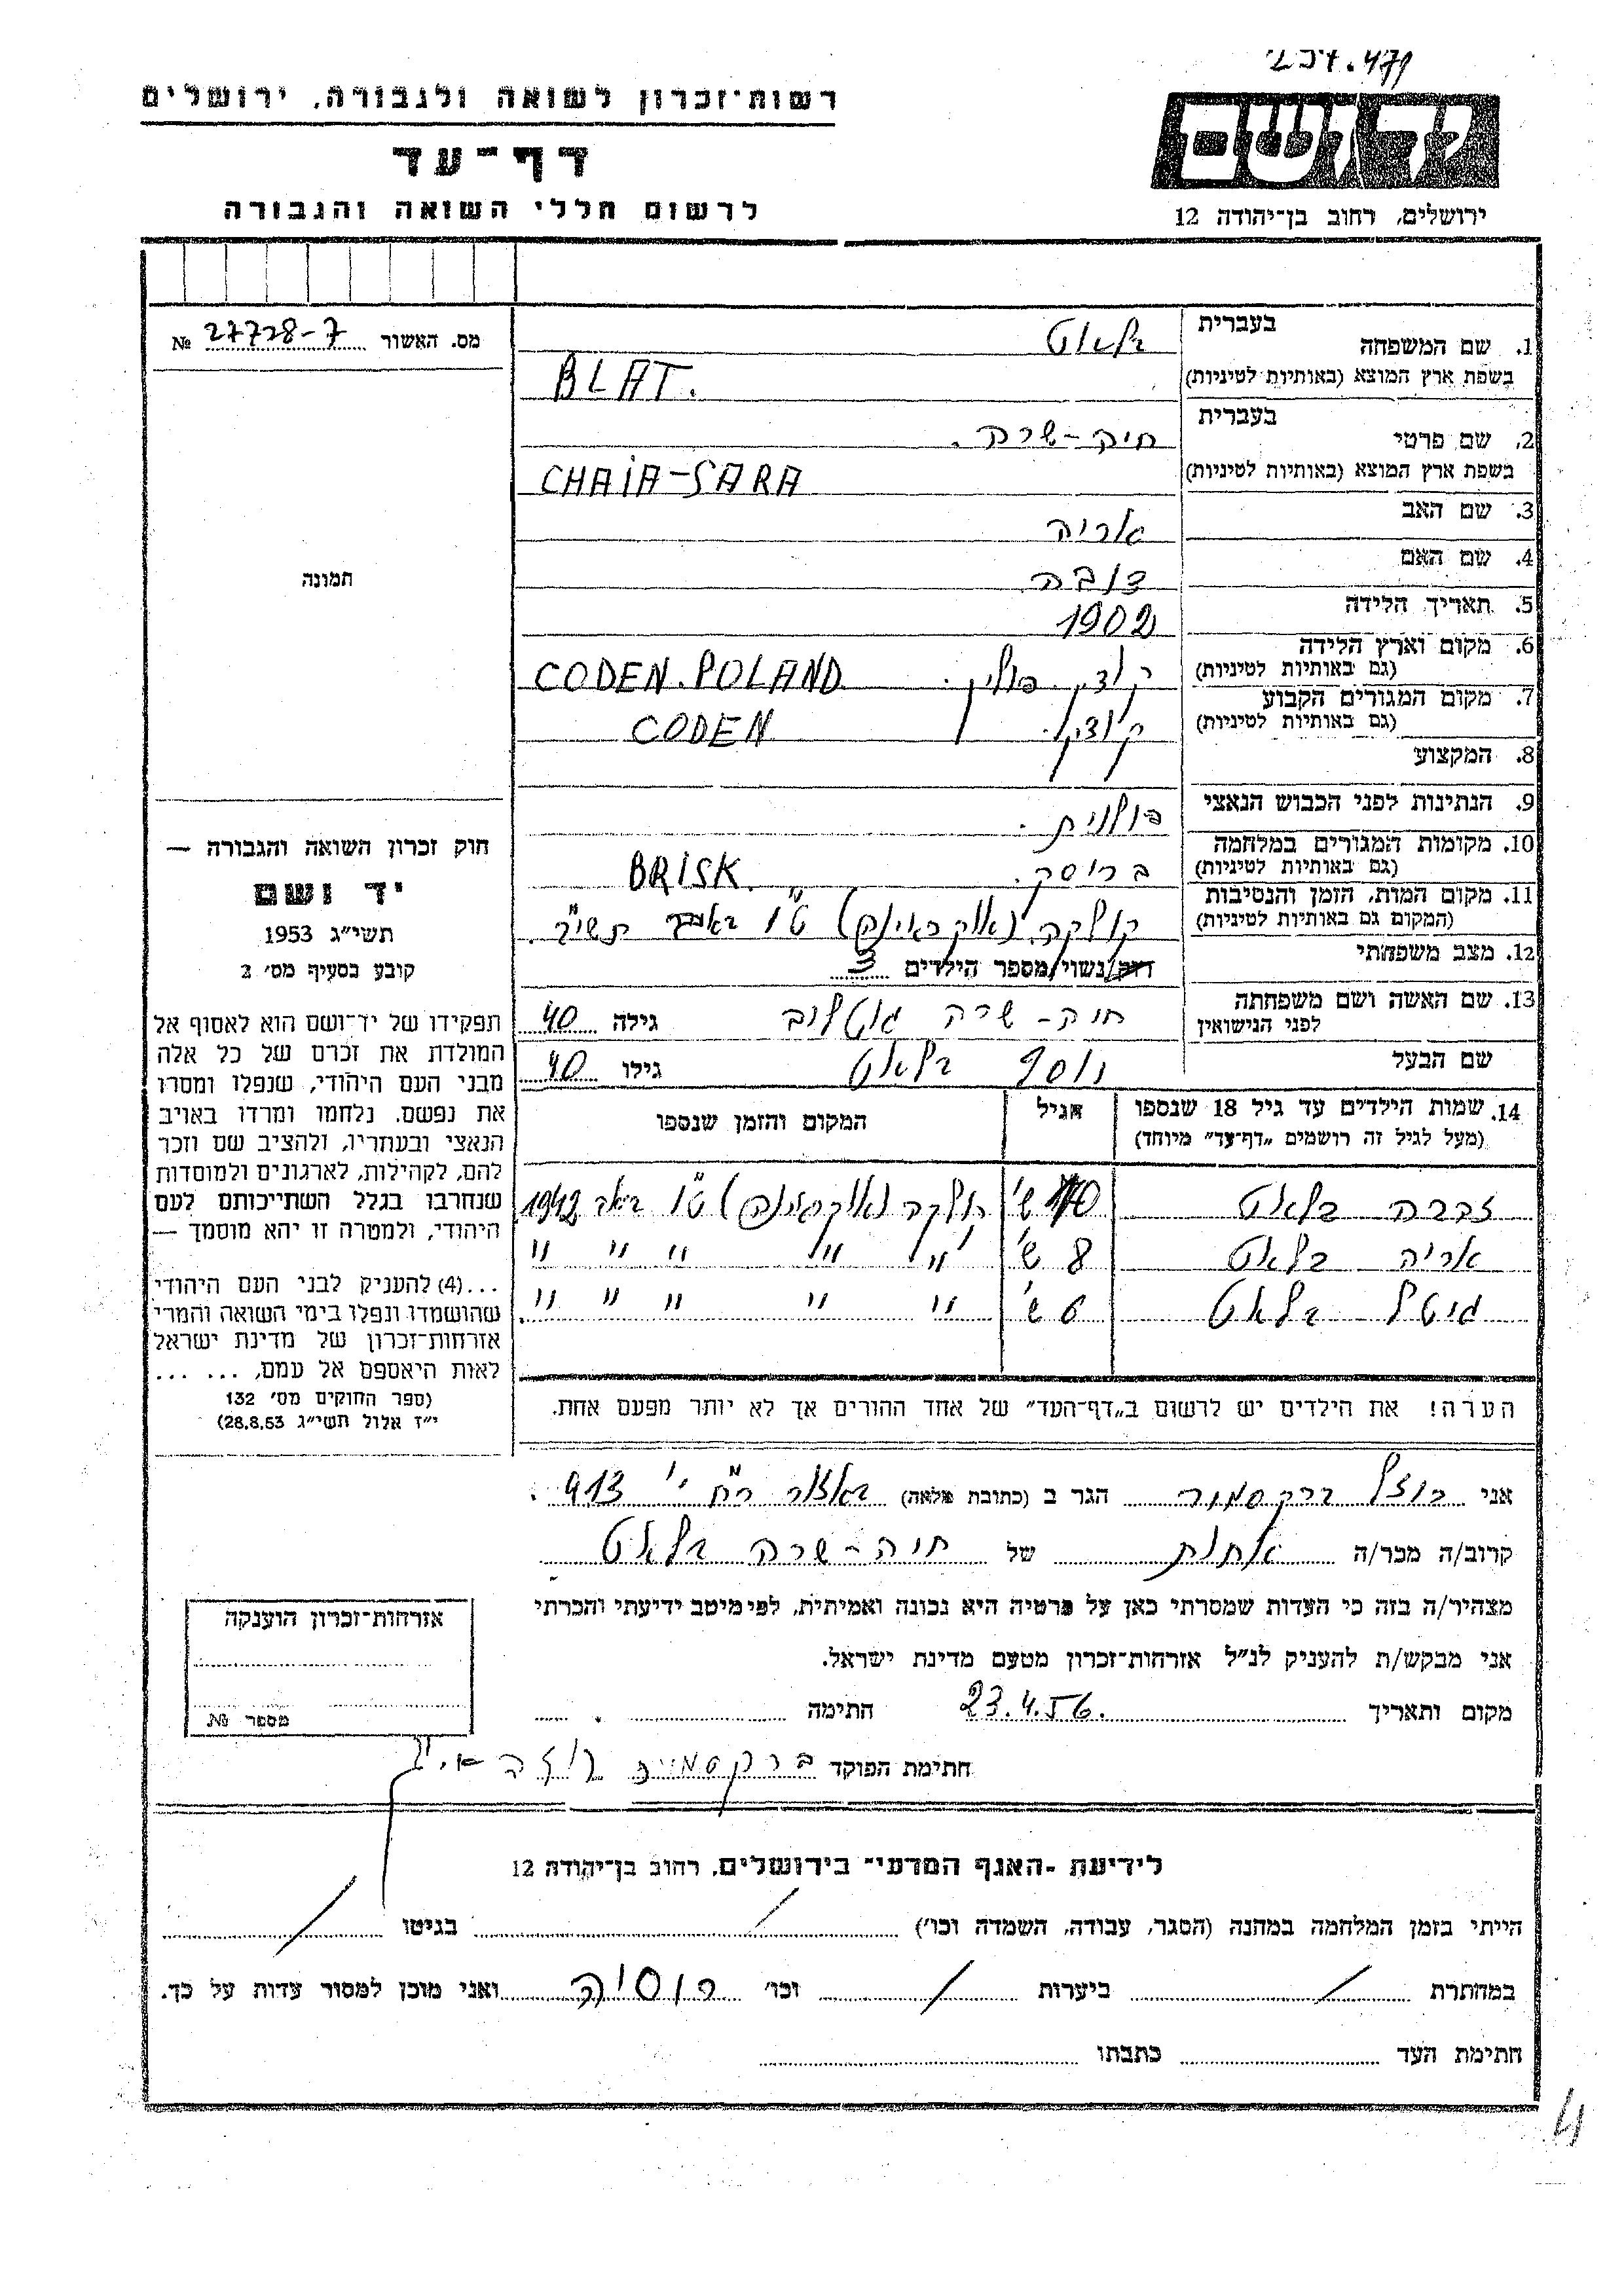 237.479
רשות־זכרון לשואה ולגבורה, ירושלים
דף־עד
לרשום חללי השואה והגבורה
יד ושם
ירושלים, רחוב בן־יהודה 12
מס. האשור 27728-7 №
תמונה
חוק זכרון השואה והגבורה —
יד ושם
תשי״ג 1953
קובע בסעיף מס׳ 2
תפקידו של יד־ושם הוא לאסוף אל
המולדת את זכרם של כל אלה
מבני העם היהודי, שנפלו ומסרו
את נפשם, נלחמו ומרדו באויב
הנאצי ובעוזריו, ולהציב שם וזכר
להם, לקהילות, לארגונים ולמוסדות
שנחרבו בגלל השתייכותם לעם
היהודי, ולמטרה זו יהא מוסמך —
...(4) להעניק לבני העם היהודי
שהושמדו ונפלו בימי השואה והמרי
אזרחות־זכרון של מדינת ישראל
לאות היאספם אל עמם, ... ...
(ספר החוקים מס׳ 132
י״ז אלול תשי״ג 28.8.53)
1. שם המשפחה בעברית בלאט
בשפת ארץ המוצא (באותיות לטיניות) BLAT.
2. שם פרטי בעברית חיה-שרה.
בשפת ארץ המוצא (באותיות לטיניות) CHAIA-SARA
3. שם האב אריה
4. שם האם דובה
5. תאריך הלידה 1902
6. מקום וארץ הלידה (גם באותיות לטיניות) קודן, פולין. CODEN.POLAND
7. מקום המגורים הקבוע (גם באותיות לטיניות) קודן. CODEN
8. המקצוע
9. הנתינות לפני הכבוש הנאצי פולנית.
10. מקומות המגורים במלחמה (גם באותיות לטיניות) בריסק. BRISK.
11. מקום המות, הזמן והנסיבות (המקום גם באותיות לטיניות) (אוקראינה) ט״ו באב תש״ב.
12. מצב משפחתי רווק/נשוי/מספר הילדים 3
13. שם האשה ושם משפחתה לפני הנישואין חיה-שרה גוטליב גילה 40
שם הבעל יוסף בלאט גילו 40
14. שמות הילדים עד גיל 18 שנספו (מעל לגיל זה רושמים „דף־עד״ מיוחד) הגיל המקום והזמן שנספו
דברה בלאט 10 ש׳ (אוקראינה) ט״ו באב 1942
אריה בלאט 8 ש׳ " " " " "
גיטל בלאט 6 ש׳ " " " " ".
הערה! את הילדים יש לרשום ב„דף־העד״ של אחד ההורים אך לא יותר מפעם אחת.
אני רוזל ברקסמור הגר ב (כתובת מלאה) 413.
קרוב/ה מכר/ה אחות של חיה-שרה בלאט
מצהיר/ה בזה כי העדות שמסרתי כאן על פרטיה היא נכונה ואמיתית, לפי מיטב ידיעתי והכרתי
אני מבקש/ת להעניק לנ״ל אזרחות־זכרון מטעם מדינת ישראל.
מקום ותאריך 23.4.56. חתימה
אזרחות־זכרון הוענקה
מספר №
חתימת הפוקד
לידיעת „האגף המדעי״ בירושלים, רחוב בן־יהודה 12
הייתי בזמן המלחמה במחנה (הסגר, עבודה, השמדה וכו׳) / בגיטו /
במחתרת / ביערות / וכו׳ רוסיה ואני מוכן למסור עדות על כך.
חתימת העד כתבתו